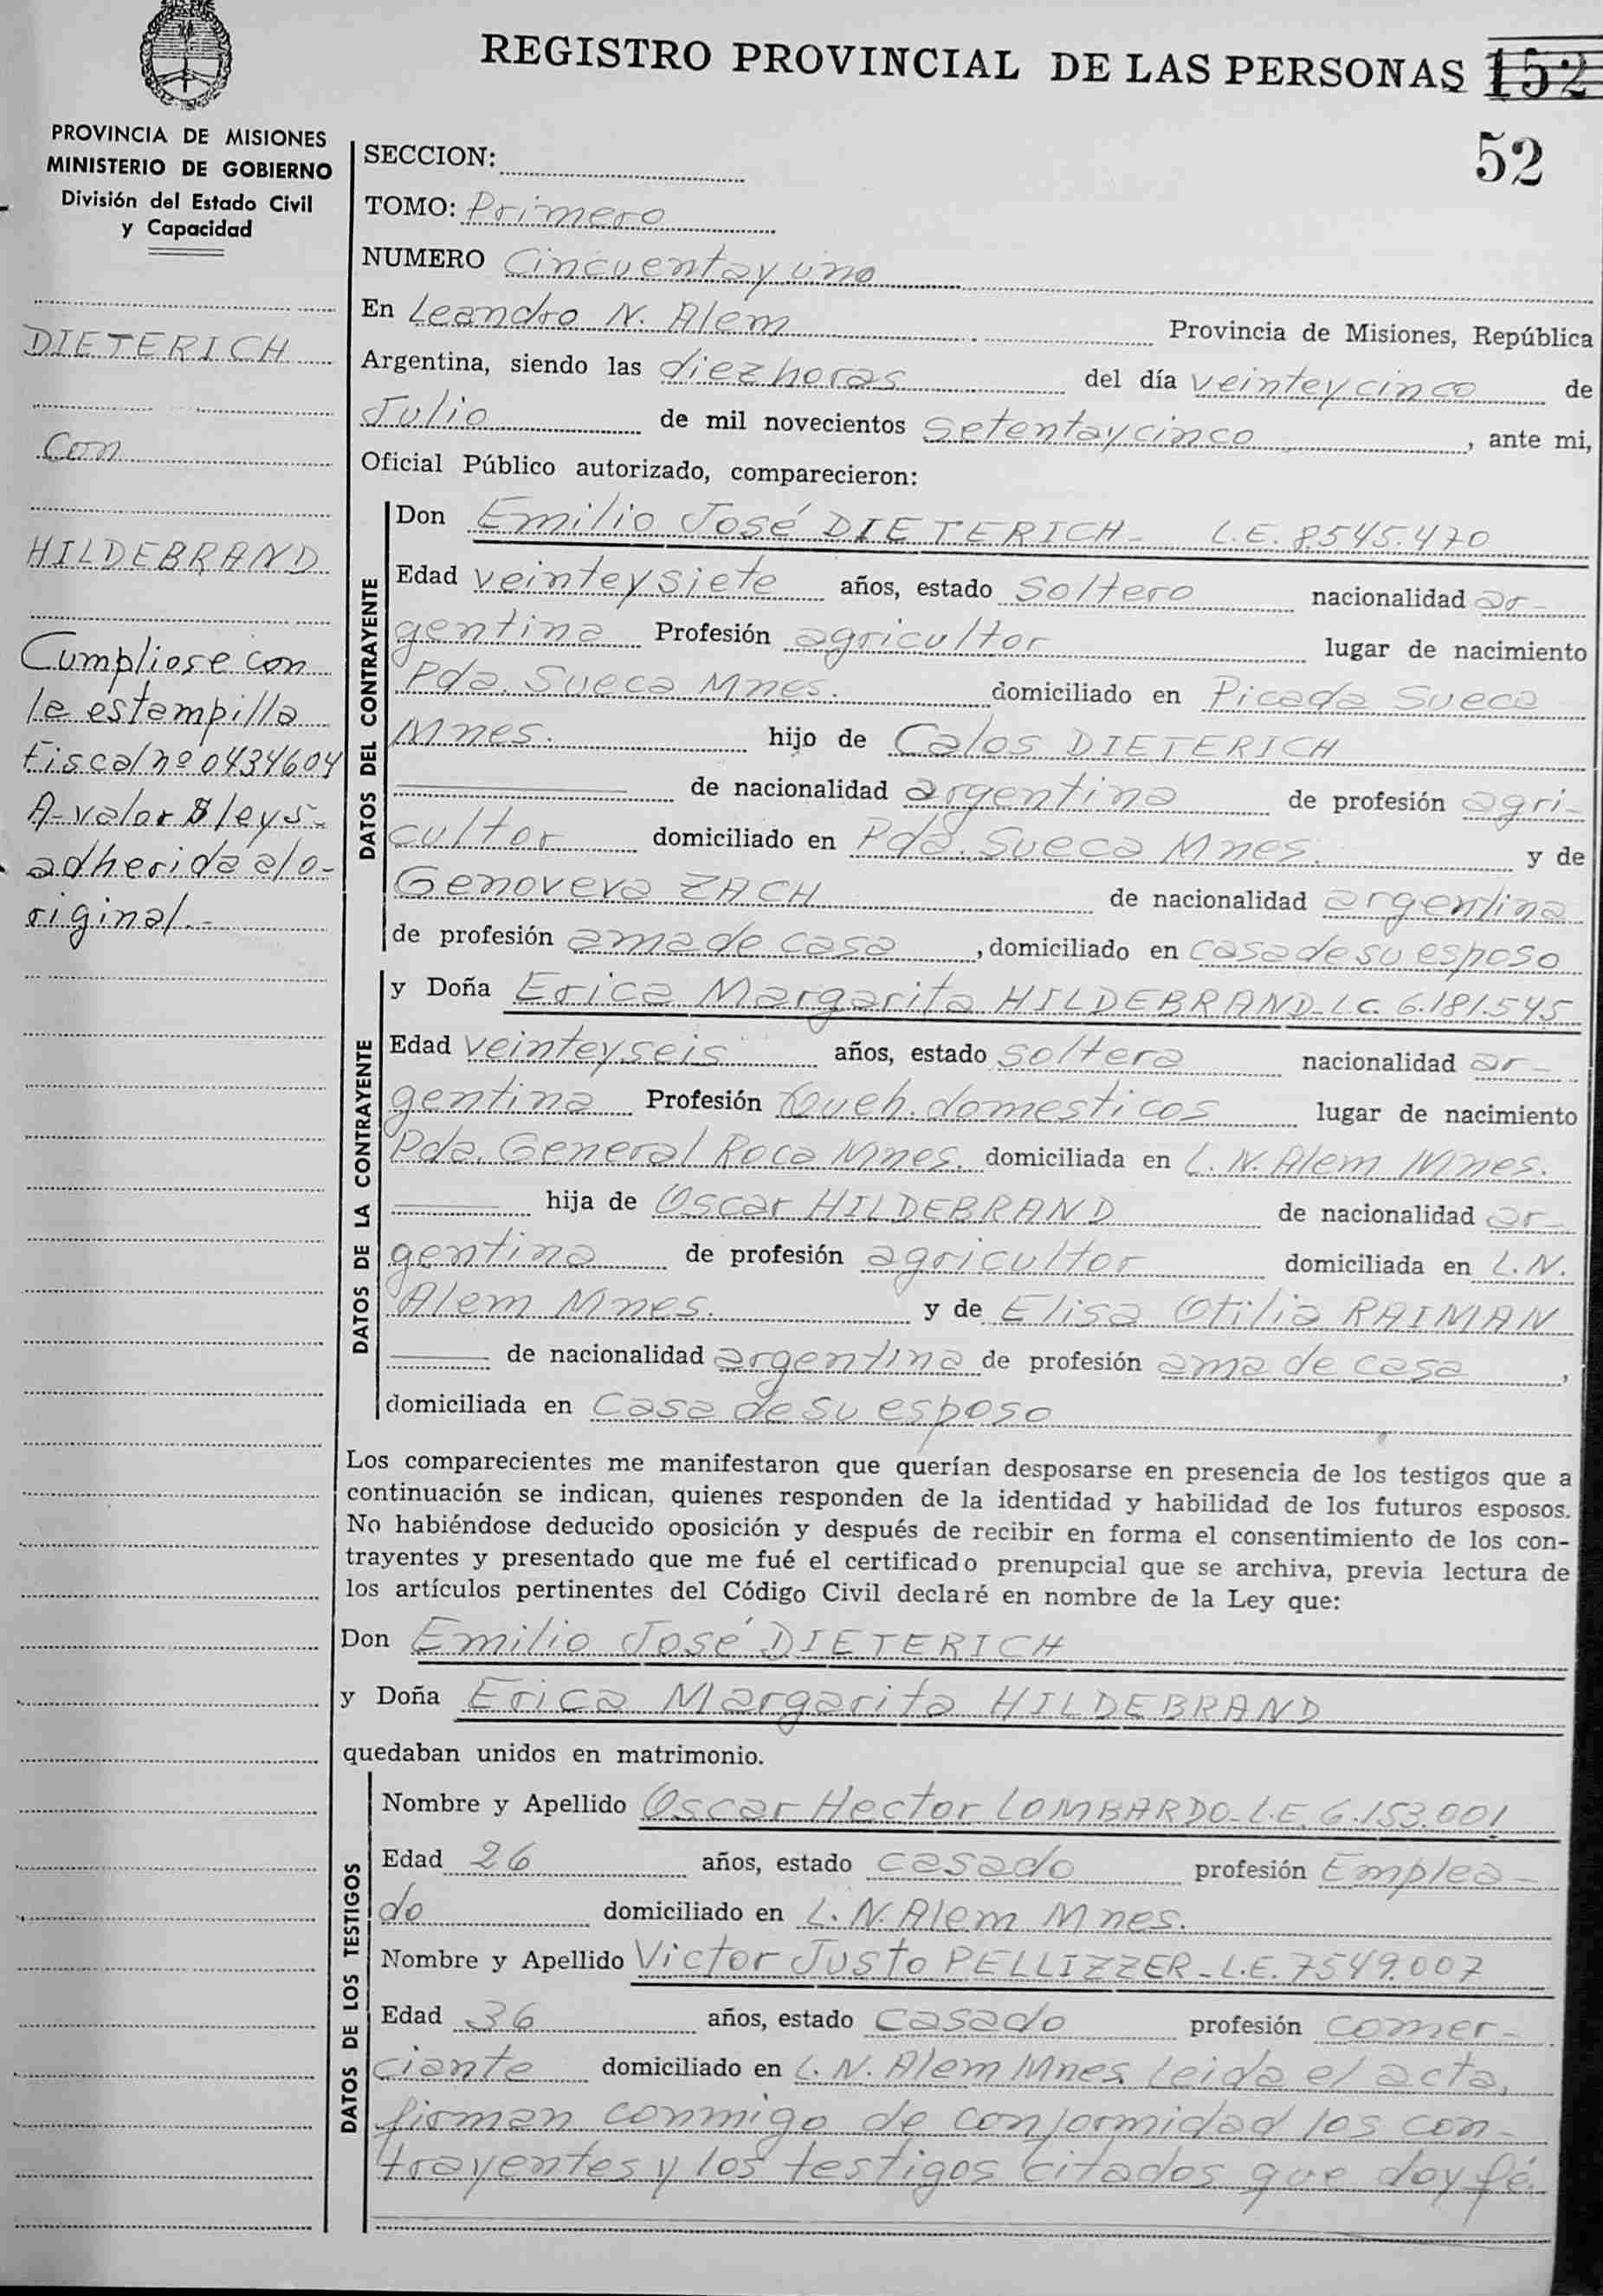 REGISTRO PROVINCIAL DE LAS PERSONAS 152
52
PROVINCIA DE MISIONES
MINISTERIO DE GOBIERNO
División del Estado Civil
y Capacidad
DIETERICH
Con
HILDEBRAND
Cumpliose con
la estampilla
Fiscal nº 0434604
A- valor $ ley 5.-
adherida al o-
riginal.-
SECCION:
TOMO: Primero
NUMERO Cincuenta y uno
En Leandro N. Alem Provincia de Misiones, República
Argentina, siendo las diez horas del día veinte y cinco de
Julio de mil novecientos Setenta y cinco, ante mi,
Oficial Público autorizado, comparecieron:
DATOS DEL CONTRAYENTE
Don Emilio José DIETERICH- L.E. 8.545.470
Edad veinte y siete años, estado Soltero nacionalidad ar-
gentina Profesión agricultor lugar de nacimiento
Pda. Sueca Mnes. domiciliado en Picada Sueca
Mnes. hijo de Calos DIETERICH
de nacionalidad argentina de profesión agri-
cultor domiciliado en Pda. Sueca Mnes. y de
Genoveva ZACH de nacionalidad argentina
de profesión ama de casa, domiciliado en casa de su esposo
DATOS DE LA CONTRAYENTE
y Doña Erica Margarita HILDEBRAND-L.C. 6.181.545
Edad veinte y seis años, estado soltera nacionalidad ar-
gentina Profesión Queh. domesticos lugar de nacimiento
Pda. General Roca Mnes. domiciliada en L. N. Alem Mnes.
hija de Oscar HILDEBRAND de nacionalidad ar-
gentina de profesión agricultor domiciliada en L. N.
Alem Mnes. y de Elisa Otilia RAIMAN
de nacionalidad argentina de profesión ama de casa,
domiciliada en Casa de su esposo
Los comparecientes me manifestaron que querían desposarse en presencia de los testigos que a
continuación se indican, quienes responden de la identidad y habilidad de los futuros esposos.
No habiéndose deducido oposición y después de recibir en forma el consentimiento de los con-
trayentes y presentado que me fué el certificado prenupcial que se archiva, previa lectura de
los artículos pertinentes del Código Civil declaré en nombre de la Ley que:
Don Emilio José DIETERICH
y Doña Erica Margarita HILDEBRAND
quedaban unidos en matrimonio.
DATOS DE LOS TESTIGOS
Nombre y Apellido Oscar Hector LOMBARDO-L.E. 6.153.001
Edad 26 años, estado casado profesión Emplea-
do domiciliado en L. N. Alem Mnes.
Nombre y Apellido Victor Justo PELLIZZER-L.E. 7549.007
Edad 36 años, estado casado profesión comer-
ciante domiciliado en L. N. Alem Mnes Leida el acta,
firman conmigo de conformidad los con-
trayentes y los testigos citados que doy fé.